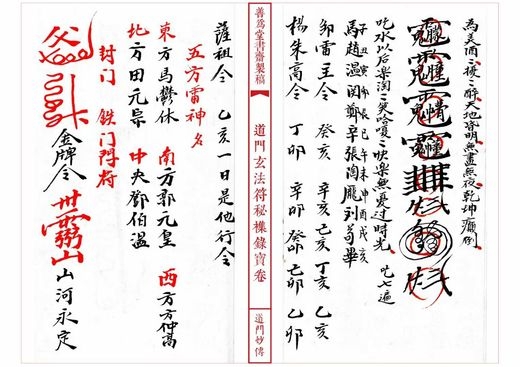 天地昏明無晝無夜乾坤癲倒
吃水以后樂淘〻笑哈〻快樂無憂过時光 吃七遍
子丑寅卯辰巳午未申酉戌亥
馬趙温関鄭辛張陶龐刘苟畢
邹雷王令 癸亥 辛亥 己亥 丁亥 乙亥
楊朱高令 丁卯 辛卯 癸卯 己卯 乙卯
善為堂書齋製稿
道門玄法符秘
錄寶卷
道門妙傳
薩祖令 乙亥一日是他行令
五方雷神名
東方馬鬱休 南方郭元皇 西方方仲高
北方田元 中央鄧伯温
封门 鉄门 将
金牌令 山河永定